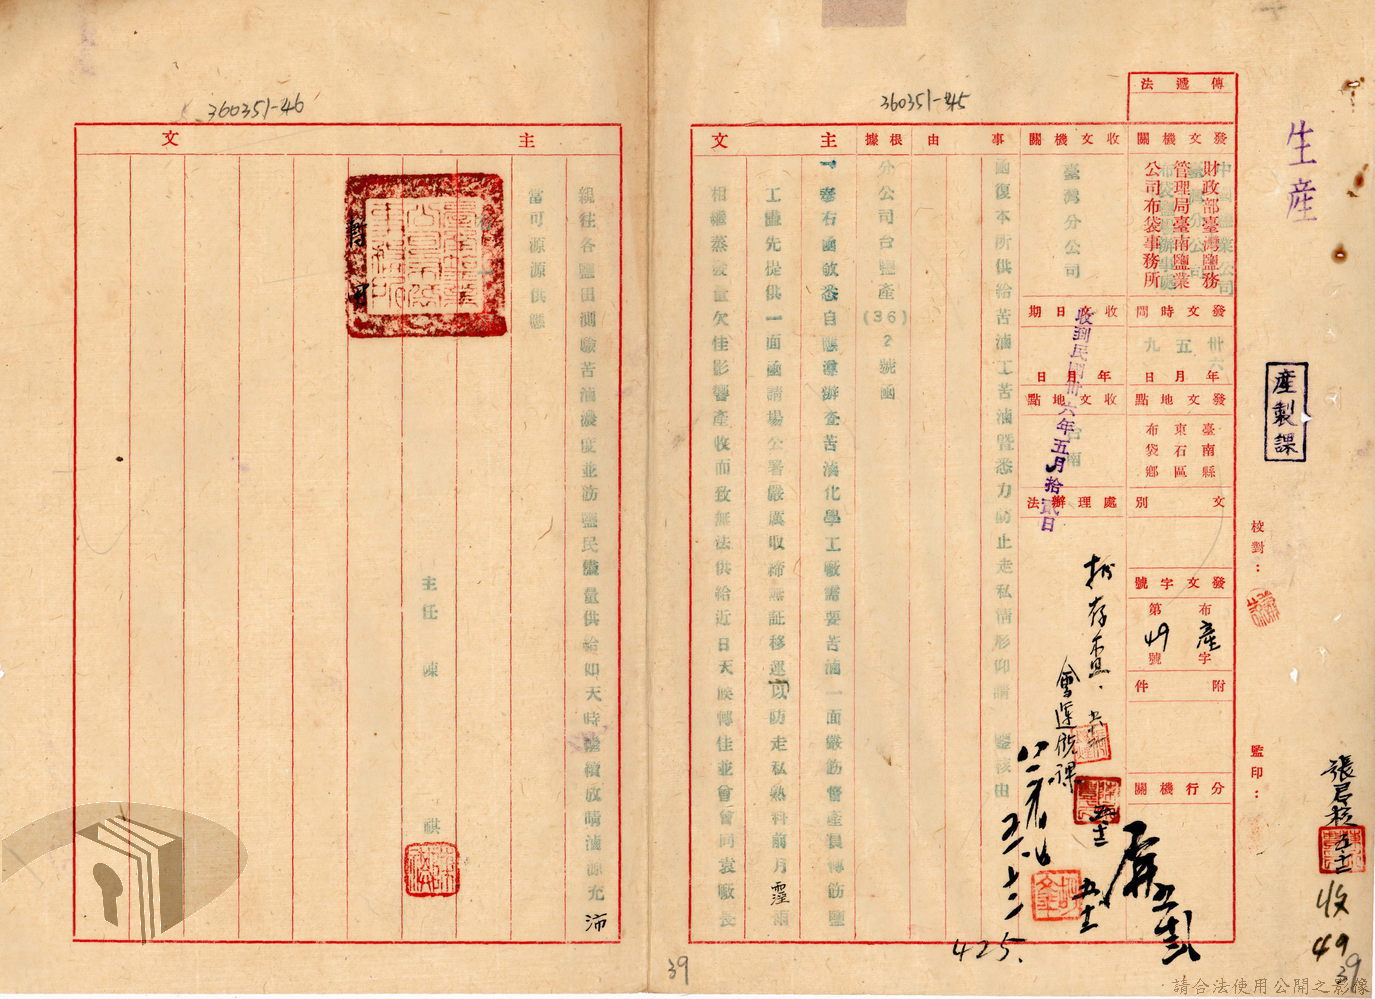 生産
産製課
校對：
監印：
張君核 五十二
收
49
39
傳遞法
發文機關
中國鹽業公司
臺灣分公司
布袋鹽場辦事處
財政部臺灣鹽務
管理局臺南鹽業
公司布袋事務所
發文時間
卅六年五月九日
發文地點
臺南縣
東石區
布袋鄉
文別
發文字號
布產字
第49號
附件
分行機關
收文機關
臺灣分公司
收文日期
年月日
收到民國卅六年五月拾貳日
收文地點
台南
處理辦法
擬存查
會運銷課
425.
事由
函復本所供給苦滷工苦滷暨悉力防止走私情形仰請 鑒核由
根據
分公司台鹽產(36)2號函
360351-45
主文
一、奉右函敬悉自應遵辦查苦滷化學工廠需要苦滷一面嚴飭督產員轉飭鹽
工儘先提供一面函請場公署嚴厲取締無証移運以防走私熟料前月霪雨
相繼蒸發量欠佳影響產收而致無法供給近日天候轉佳並曾會同袁廠長
39
360351-46
主文
親往各鹽田測驗苦滷濃度並飭鹽民儘量供給如天時繼續放晴滷源充沛
當可源源供應
暫代
主任 陳 祺
請合法使用公開之影像